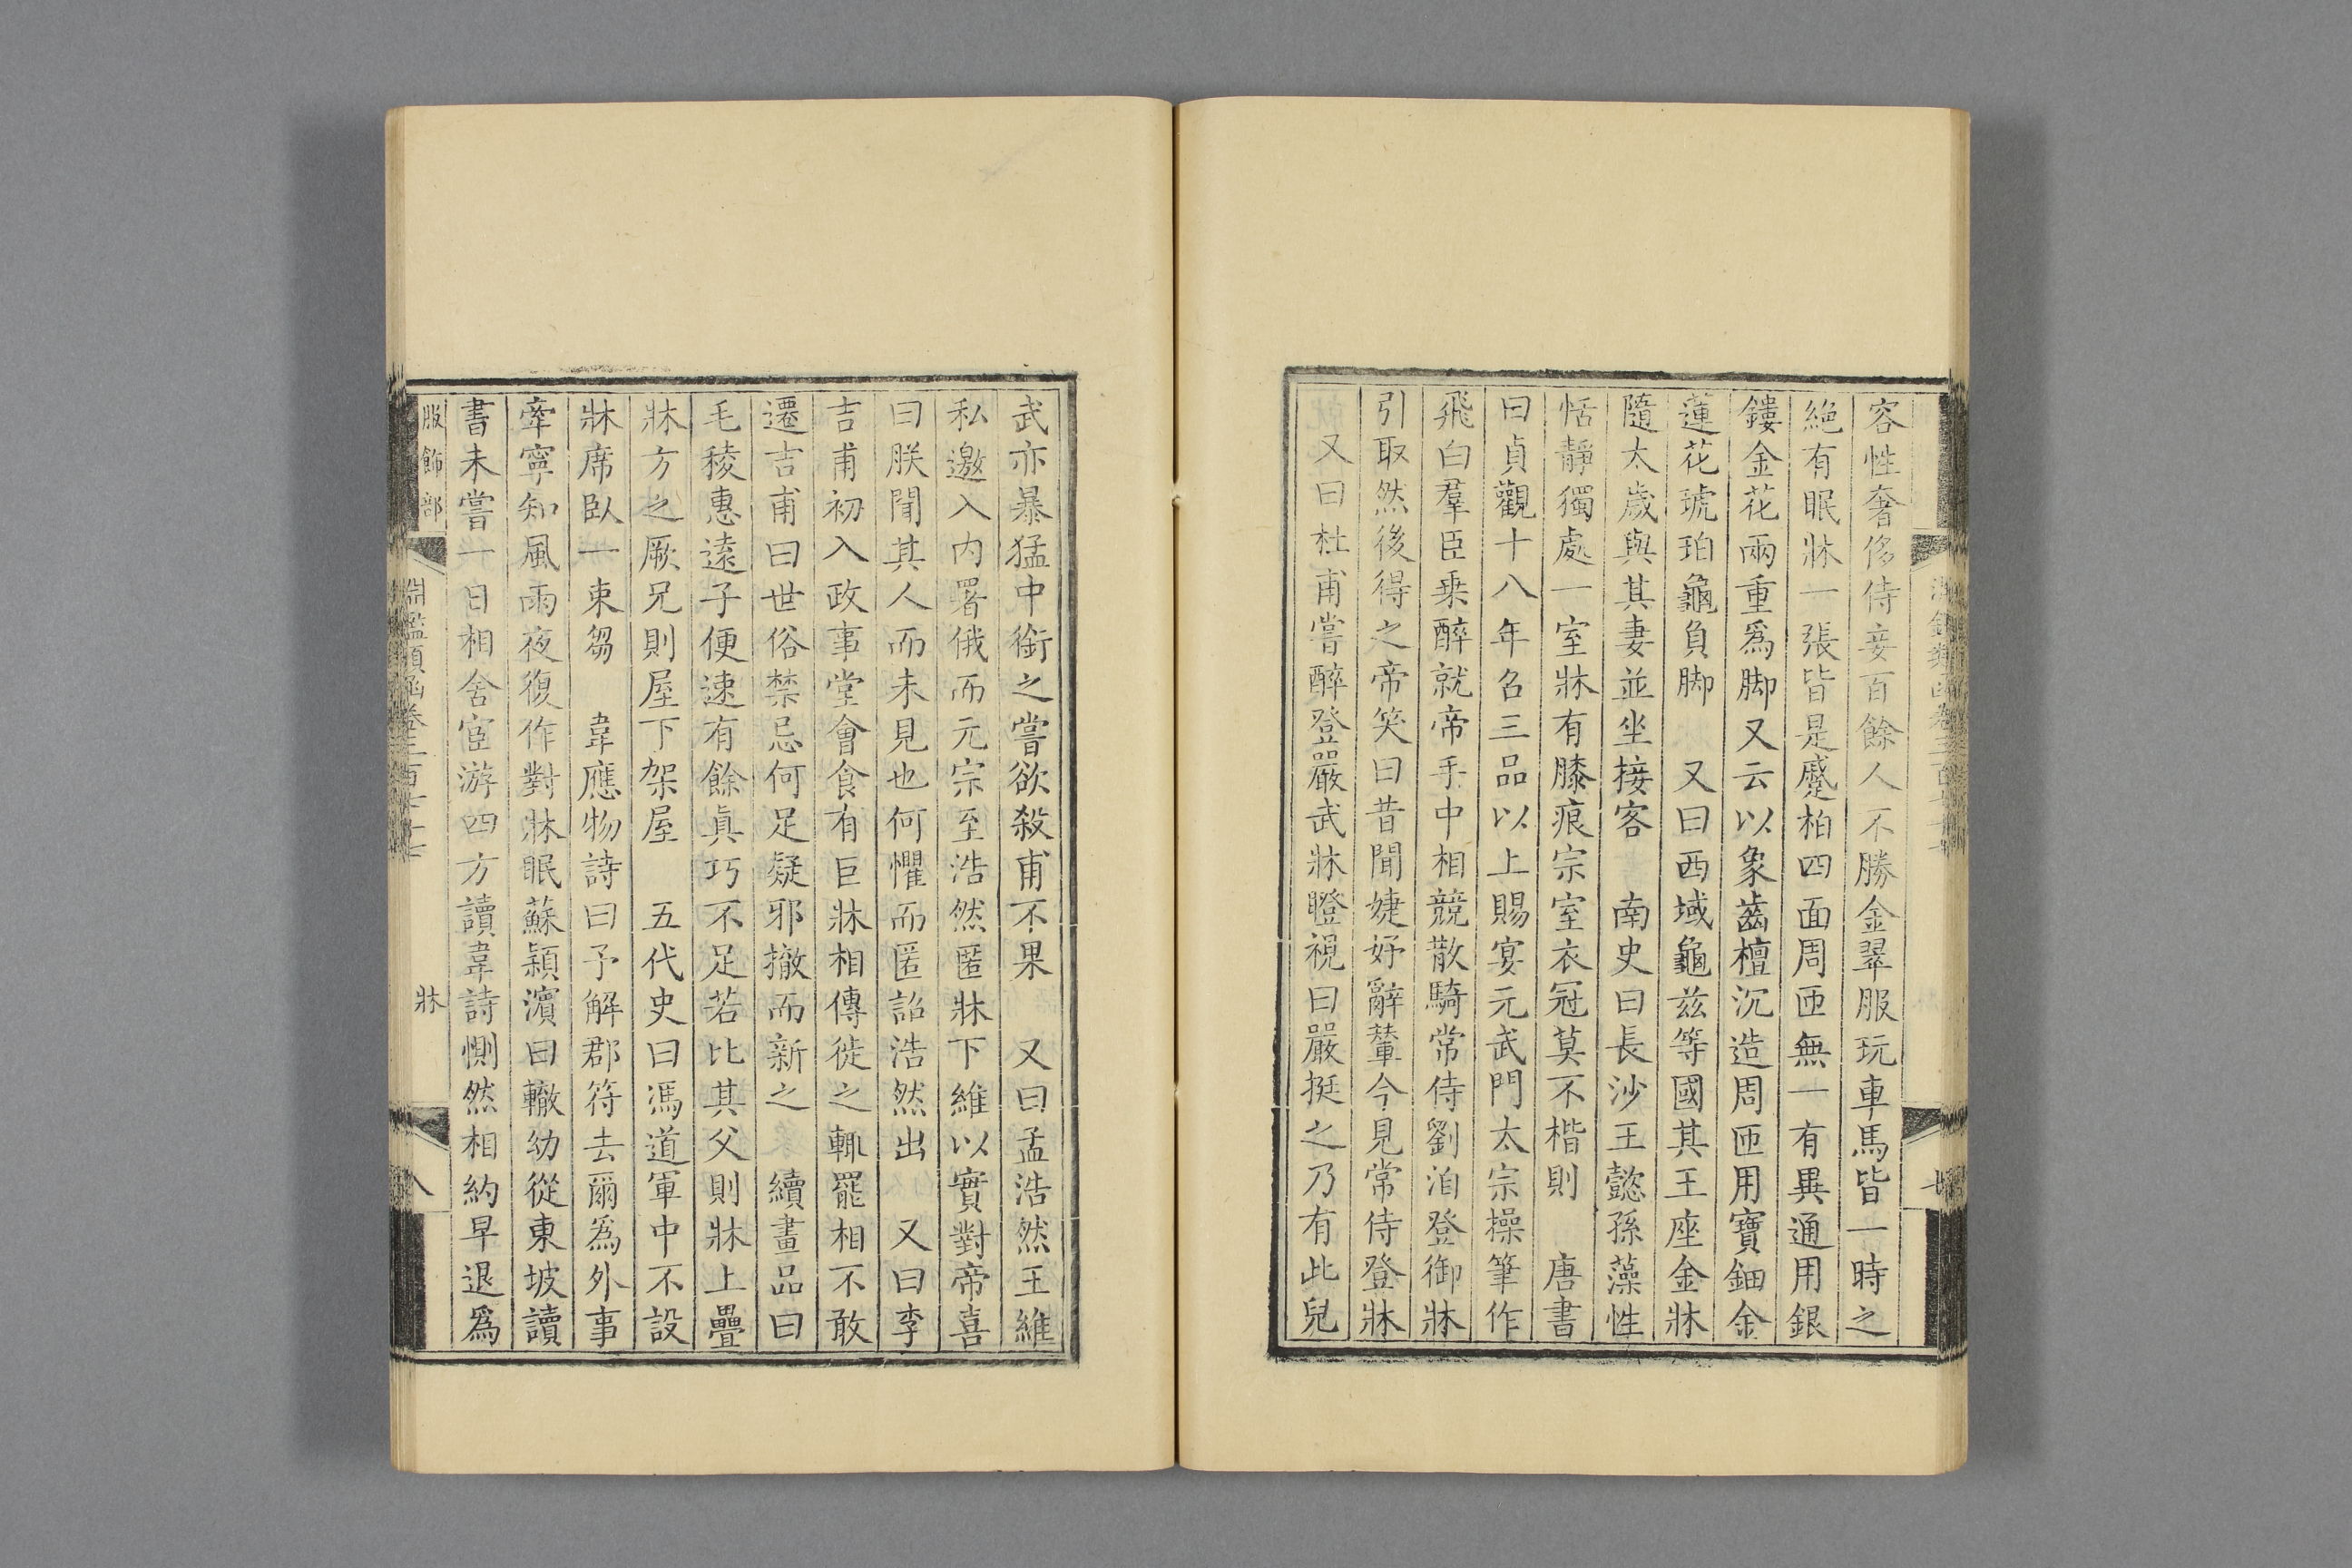 容性奢侈侍妾百餘人不勝金翠服玩車馬皆一時之
絕有眠牀一張皆是蹙柏四面周匝無一有異通用銀
鏤金花兩重爲脚又云以象齒檀沉造周匝用寶鈿金
蓮花琥珀龜負脚 又曰西域龜兹等國其王座金牀
隨太歲與其妻並坐接客 南史曰長沙王懿孫藻性
恬靜獨處一室牀有膝痕宗室衣冠莫不楷則 唐書
曰貞觀十八年召三品以上賜宴元武門太宗操筆作
飛白羣臣乗醉就帝手中相競散騎常侍劉洎登御牀
引取然後得之帝笑曰昔聞婕妤辭輦今見常侍登牀
又曰杜甫嘗醉登嚴武牀瞪視曰嚴挺之乃有此兒
武亦暴猛中銜之嘗欲殺甫不果 又曰孟浩然王維
私邀入内署俄而元宗至浩然匿牀下維以實對帝喜
曰朕聞其人而未見也何懼而匿詔浩然出 又曰李
吉甫初入政事堂會食有巨牀相傳徙之輒罷相不敢
遷吉甫曰世俗禁忌何足疑邪撤而新之 續畫品曰
毛稜惠遠子便速有餘眞巧不足若比其父則牀上疊
牀方之厥兄則屋下架屋 五代史曰馮道軍中不設
牀席臥一束芻 韋應物詩曰予解郡符去爾爲外事
牽寧知風雨夜復作對牀眠蘇潁濱曰轍幼從東坡讀
書未嘗一日相舍宦游四方讀韋詩惻然相約早退爲
服飾部
淵鑑類函卷三百七十七
牀
八